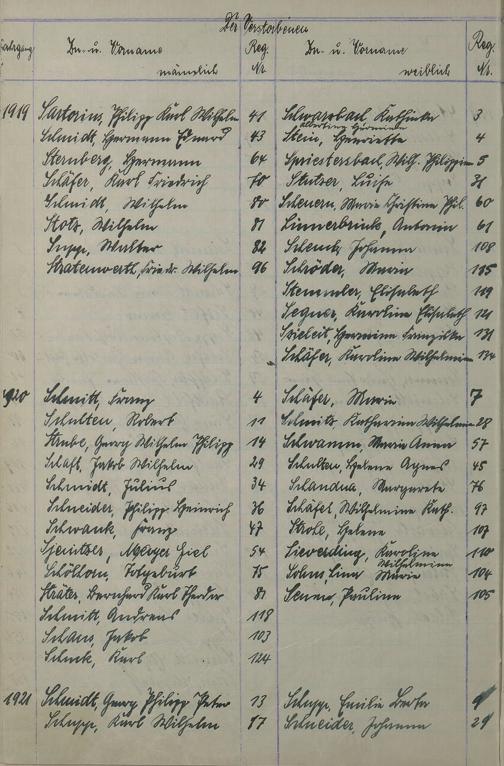 Der Verstorbenen
Jahrgang Zu- u. Vorname Reg. Zu- u. Vorname Reg.
männlich Nr. weiblich Nr.
1919 Sartorius, Philipp Karl Wilhelm 41 Schwarzbach, Kathinka 3
Schmidt, Hermann Eduard 43 Stein, Henriette 4
Sternberg, Hermann 64 Spriestersbach, Wilh. Philippine 5
Schäfer, Karl Friedrich 70 Stutzer, Luise 31
Schmidt, Wilhelm 80 Scheuern, Marie Christine Phil. 60
Stotz, Wilhelm 81 Antonie 61
Supp, Walter 82 Schenk, Johanna 108
Stratenwerth, Friedr. Wilhelm 96 Schröder, Maria 115
Stemmler, Elisabeth 119
Segner, Karoline Elisabeth 121
Hermine Franziska 131
Schäfer, Karoline Wilhelmine 134
1920 Schmitt, Franz 4 Schäfer, Maria 7
Schulten, Robert 11 Schmitz Katharina Wilhelmine 28
Strube, Georg Wilhelm Philipp 14 Schwamm, Maria Anna 57
Schaft, Jakob Wilhelm 29 Schulten, Helene Agnes 45
Schmidt, Julius 34 Schandua, Margarete 76
Schneider, Philipp Heinrich 36 Schäfer, Wilhelmine Kath. 97
Schwank, Franz 47 Strobl, Helene 107
54 Sievending, Karoline Wilhelmine 110
Schöllhorn, Totgeburt 75 Marie 104
Sträter, Bernhard Karl Theodor 81 Senner, Pauline 105
Schmitt, Andreas 118
Schanz, Jakob 103
Schuck, Karl 124
1921 Schmidt, Georg Philipp Peter 13 Schupp, Emilie Berta 9
Schupp, Karl Wilhelm 17 Schneider, Johanna 29